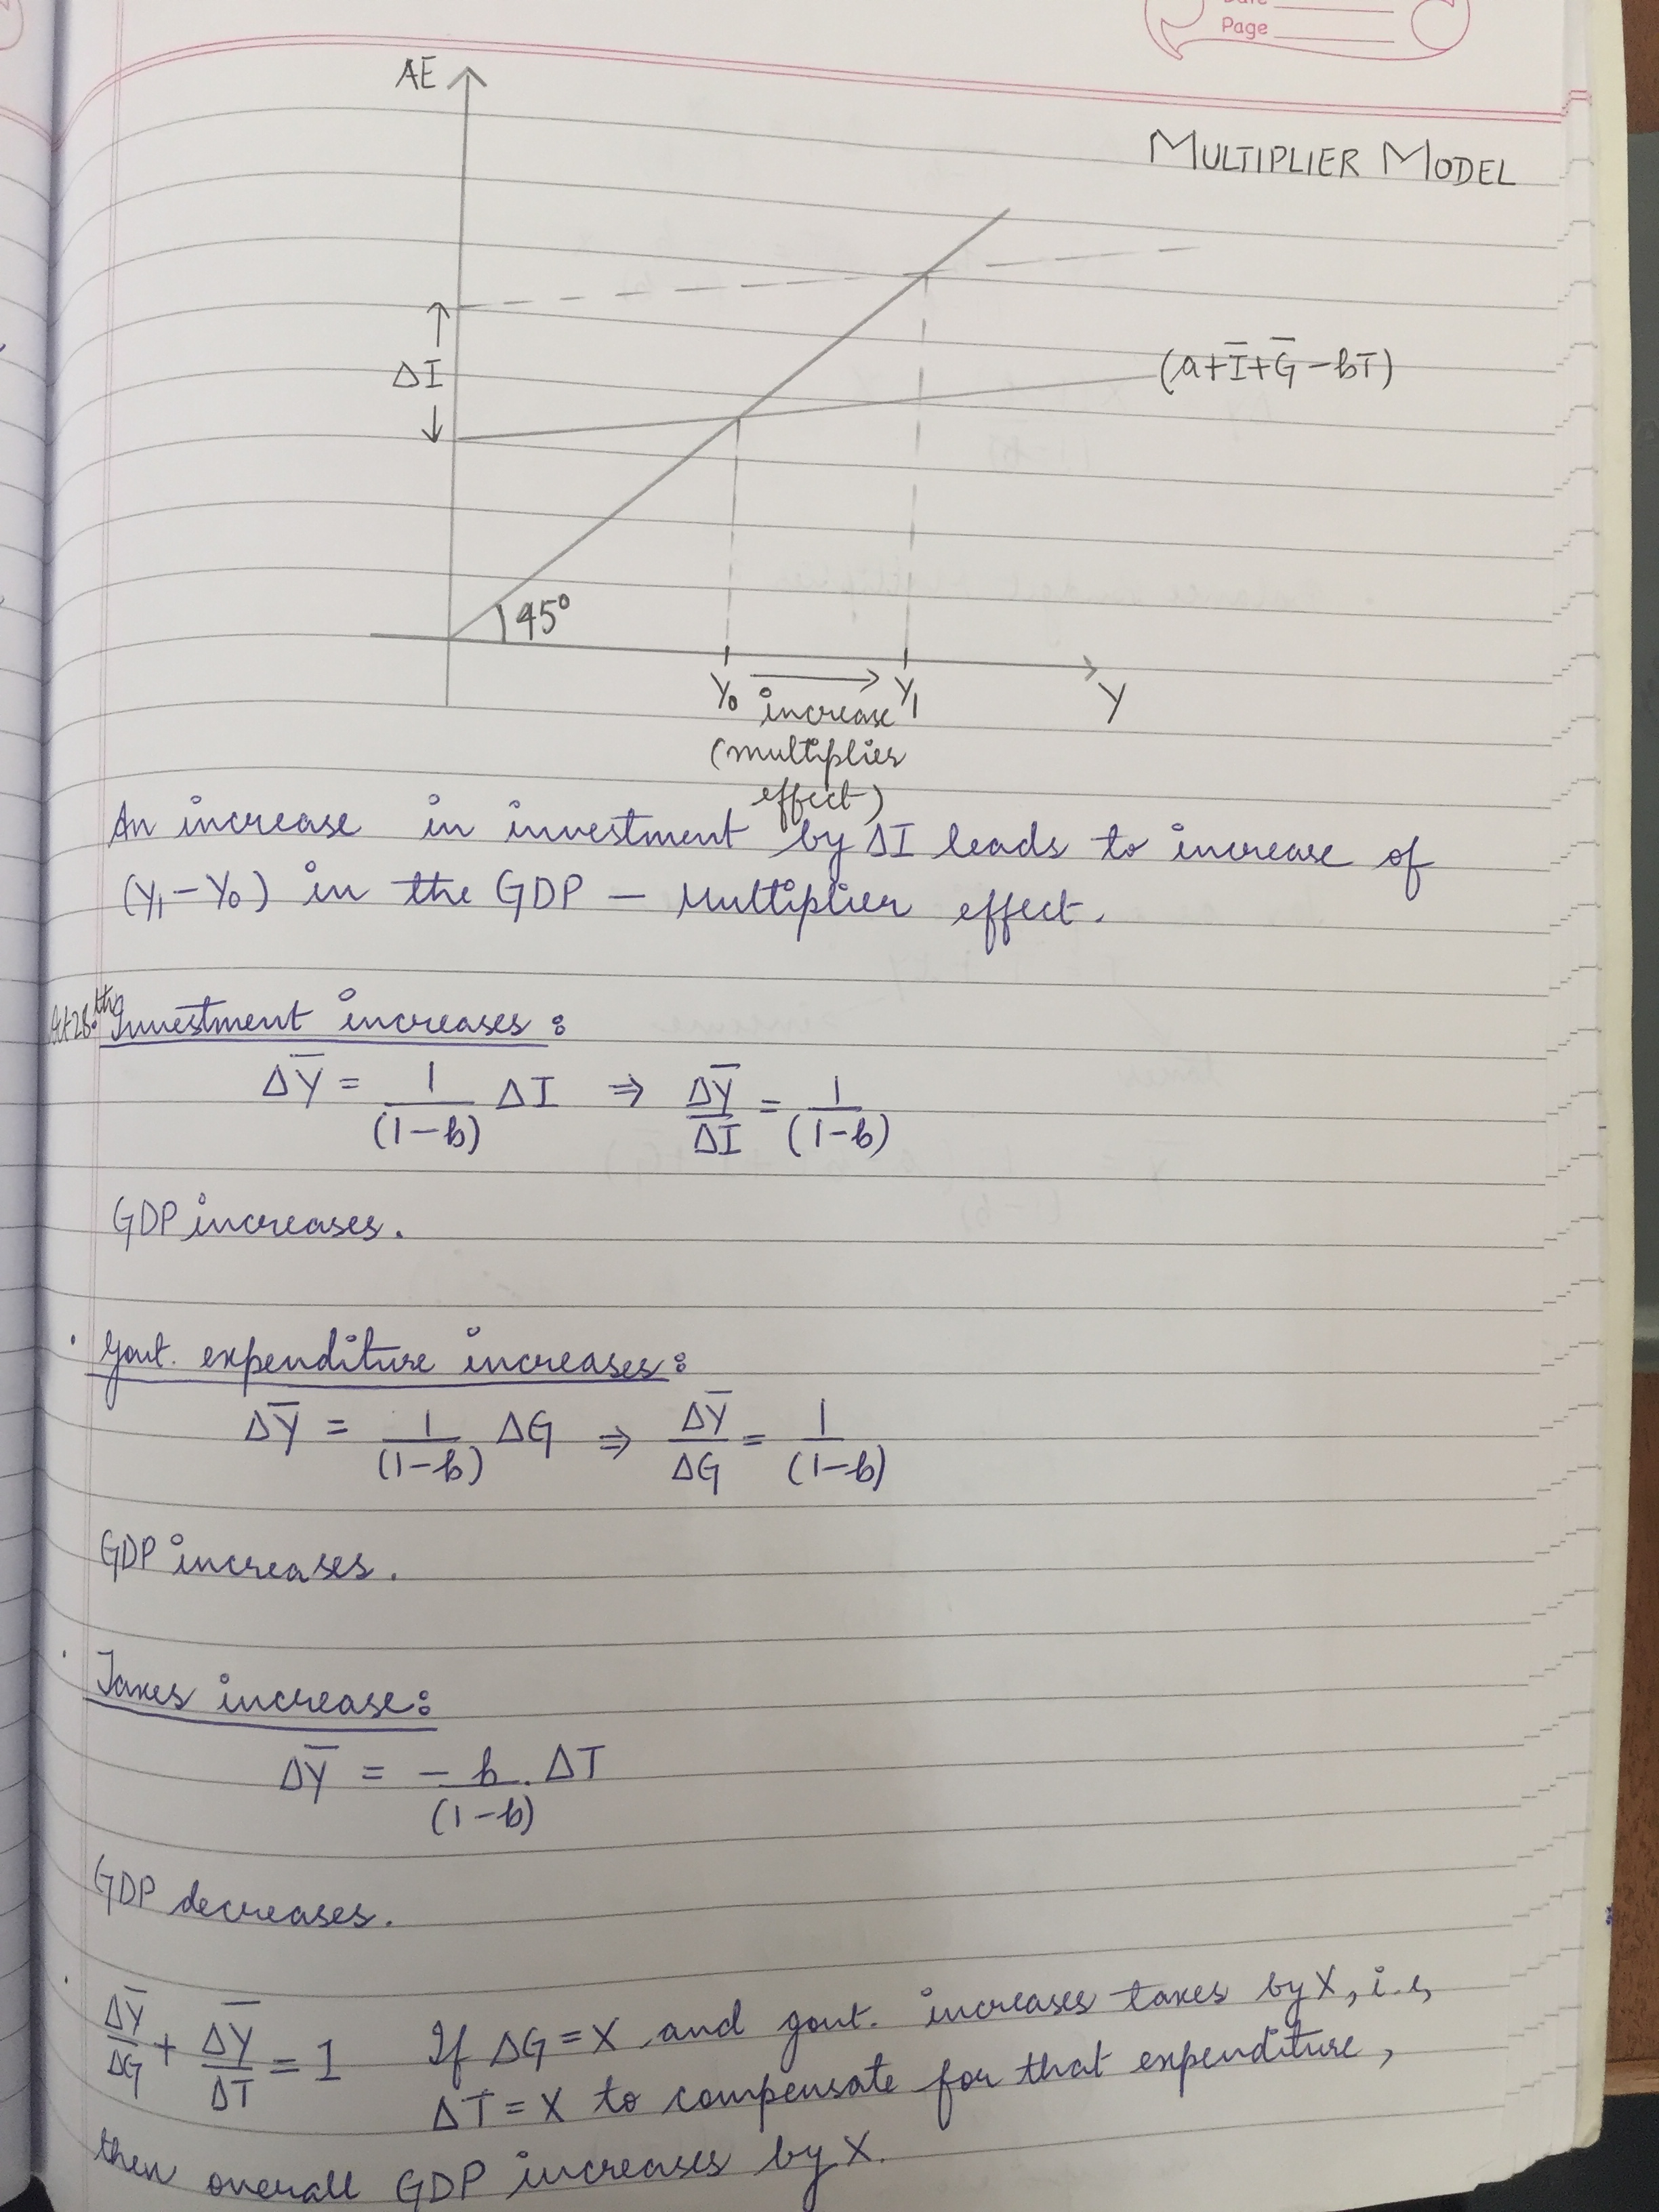 Date
Page
AE
MULTIPLIER MODEL
ΔI
(a+Ī+Ḡ-bT)
45°
Y₀ Y₁
Y
increase
(multiplier
effect)
An increase in investment by ΔI leads to increase of
(Y₁-Y₀) in the GDP — Multiplier effect.
Investment increases:
ΔȲ = 1/(1-b) ΔI ⇒ ΔȲ/ΔI = 1/(1-b)
GDP increases.
· Govt. expenditure increases:
ΔȲ = 1/(1-b) ΔG ⇒ ΔȲ/ΔG = 1/(1-b)
GDP increases.
· Taxes increase:
ΔȲ = -b/(1-b) . ΔT
GDP decreases.
· ΔȲ/ΔG + ΔȲ/ΔT = 1 If ΔG = X and govt. increases taxes by X, i.e,
ΔT = X to compensate for that expenditure,
then overall GDP increases by X.